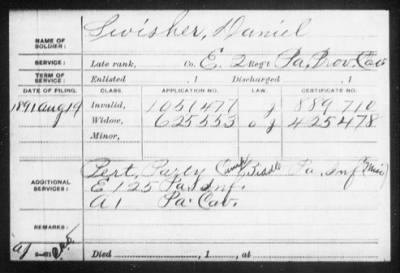 NAME OF SOLDIER: Swisher, Daniel
SERVICE: Late rank, Co. E. 2 Reg't Pa. Prov. Cav
TERM OF SERVICE: Enlisted , 1 Discharged , 1
DATE OF FILING. CLASS. APPLICATION NO. LAW. CERTIFICATE NO.
1891 Aug 19 Invalid, 1051477 j 889710
Widow, 625553 o j 425478
Minor,
ADDITIONAL SERVICES: Pert, Party Pa. Inf
E 125 Pa. Inf.
A 1 Pa. Cav.
REMARKS:
Died , 1 , at